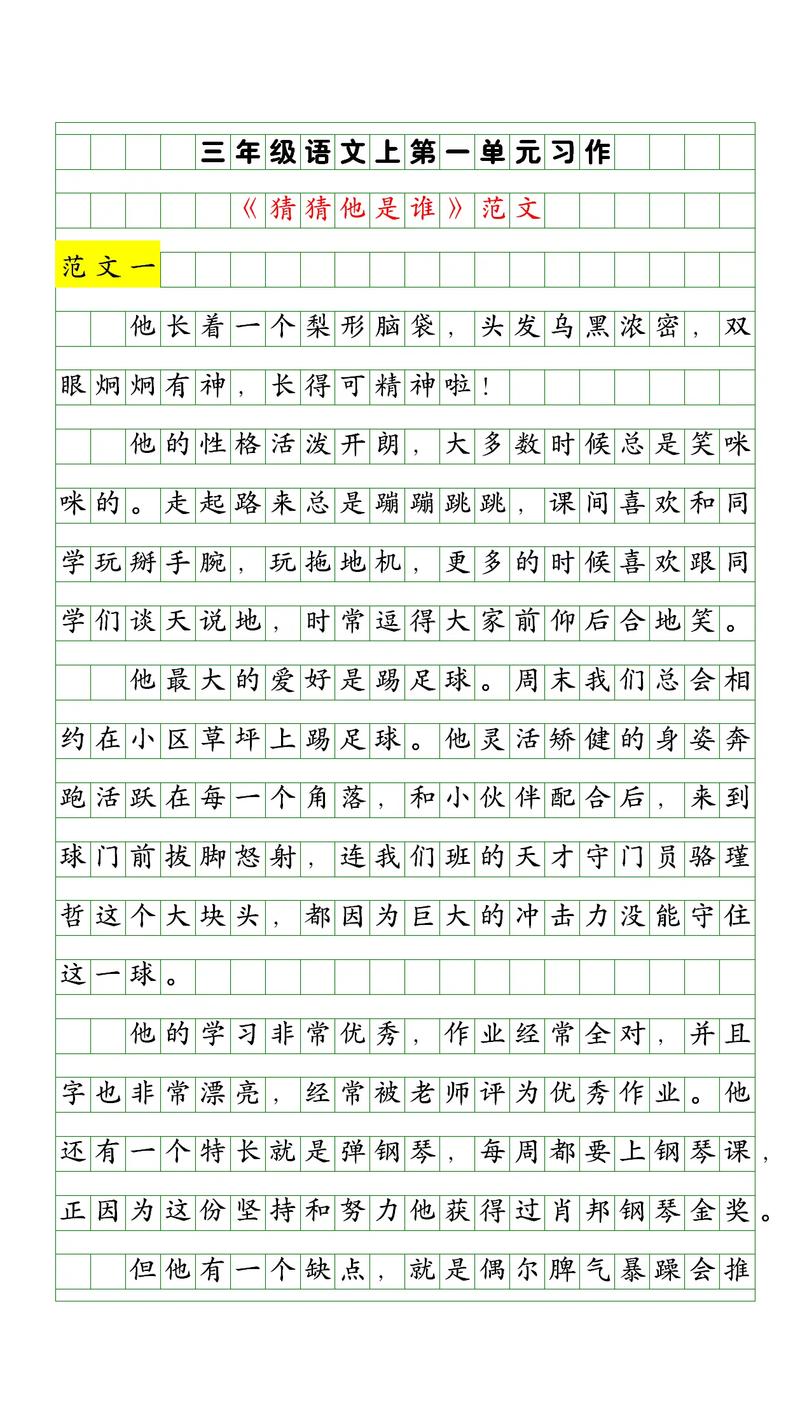 三年级语文上第一单元习作
《猜猜他是谁》范文
范文一
他长着一个梨形脑袋，头发乌黑浓密，双
眼炯炯有神，长得可精神啦！
他的性格活泼开朗，大多数时候总是笑咪
咪的。走起路来总是蹦蹦跳跳，课间喜欢和同
学玩掰手腕，玩拖地机，更多的时候喜欢跟同
学们谈天说地，时常逗得大家前仰后合地笑。
他最大的爱好是踢足球。周末我们总会相
约在小区草坪上踢足球。他灵活矫健的身姿奔
跑活跃在每一个角落，和小伙伴配合后，来到
球门前拔脚怒射，连我们班的天才守门员骆瑾
哲这个大块头，都因为巨大的冲击力没能守住
这一球。
他的学习非常优秀，作业经常全对，并且
字也非常漂亮，经常被老师评为优秀作业。他
还有一个特长就是弹钢琴，每周都要上钢琴课，
正因为这份坚持和努力他获得过肖邦钢琴金奖。
但他有一个缺点，就是偶尔脾气暴躁会推